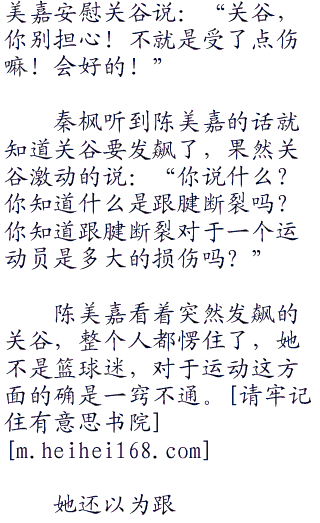 美嘉安慰关谷说：“关谷，
你别担心！不就是受了点伤
嘛！会好的！”
秦枫听到陈美嘉的话就
知道关谷要发飙了，果然关
谷激动的说：“你说什么？
你知道什么是跟腱断裂吗？
你知道跟腱断裂对于一个运
动员是多大的损伤吗？”
陈美嘉看着突然发飙的
关谷，整个人都愣住了，她
不是篮球迷，对于运动这方
面的确是一窍不通。[请牢记
住有意思书院]
[m.heihei168.com]
她还以为跟